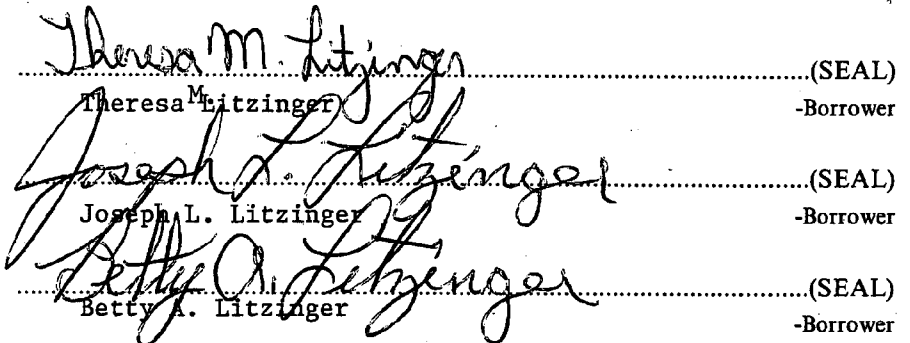 Theresa M. Litzinger
....................(SEAL)
Theresa M Litzinger -Borrower
Joseph L. Litzinger
....................(SEAL)
Joseph L. Litzinger -Borrower
Betty A. Litzinger
....................(SEAL)
Betty A. Litzinger
-Borrower